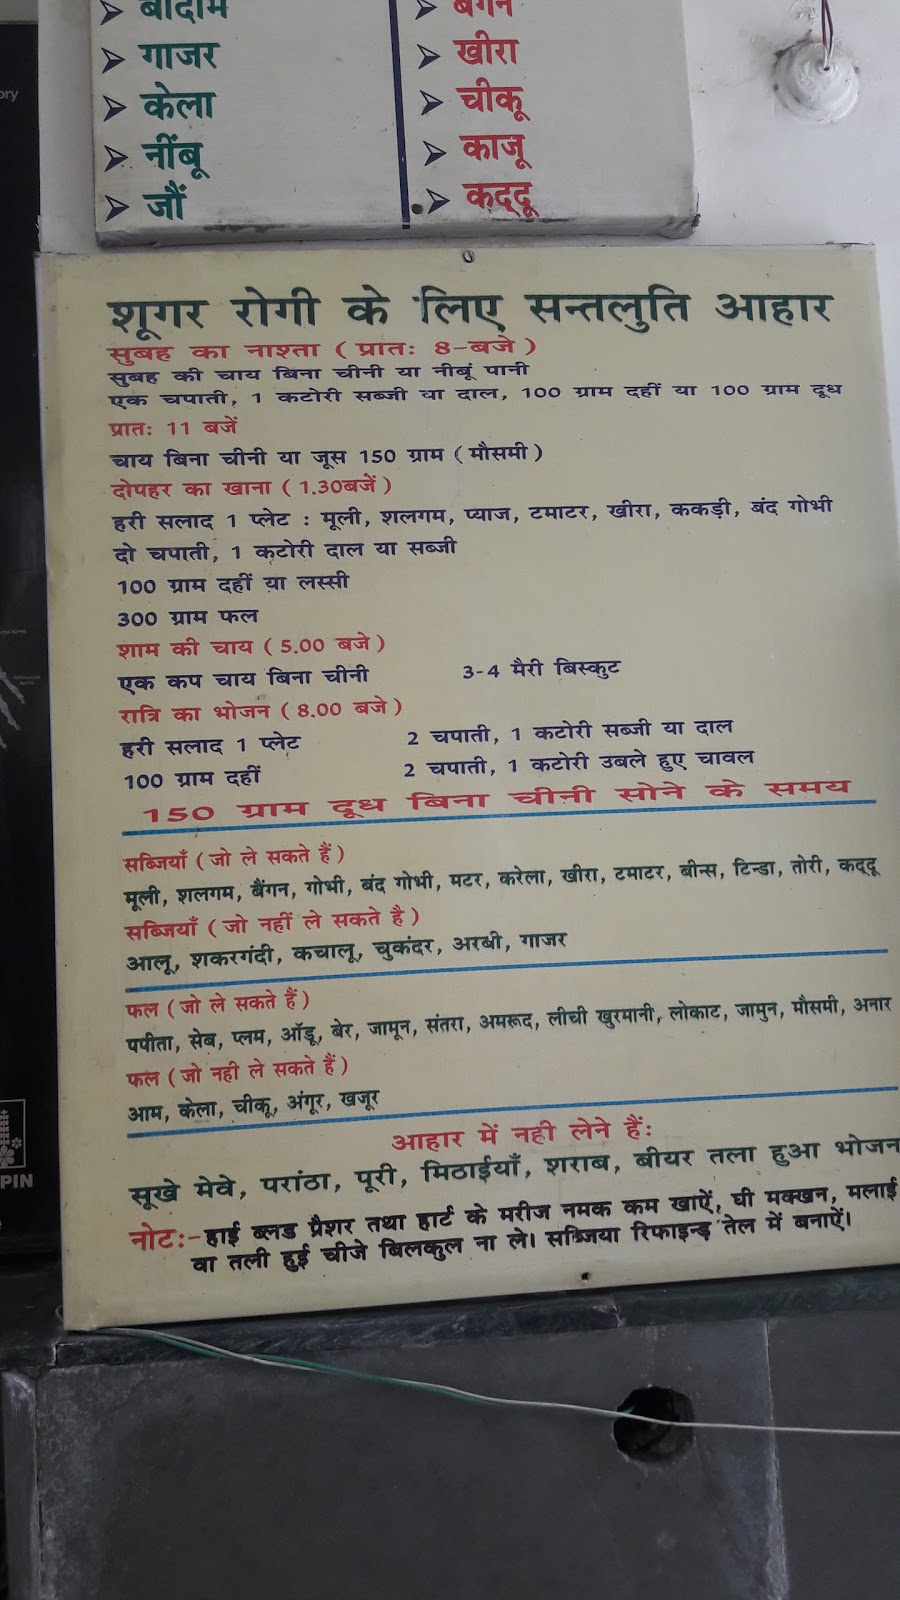 बादाम
बैंगन
गाजर
खीरा
केला
चीकू
नींबू
काजू
जौं
कद्दू
शूगर रोगी के लिए सन्तलुति आहार
सुबह का नाश्ता ( प्रातः 8-बजे )
सुबह की चाय बिना चीनी या नीबूं पानी
एक चपाती, 1 कटोरी सब्जी या दाल, 100 ग्राम दहीं या 100 ग्राम दूध
प्रातः 11 बजें
चाय बिना चीनी या जूस 150 ग्राम ( मौसमी )
दोपहर का खाना ( 1.30बजें )
हरी सलाद 1 प्लेट : मूली, शलगम, प्याज, टमाटर, खीरा, ककड़ी, बंद गोभी
दो चपाती, 1 कटोरी दाल या सब्जी
100 ग्राम दहीं या लस्सी
300 ग्राम फल
शाम की चाय ( 5.00 बजे )
एक कप चाय बिना चीनी 3-4 मैरी बिस्कुट
रात्रि का भोजन ( 8.00 बजे )
हरी सलाद 1 प्लेट 2 चपाती, 1 कटोरी सब्जी या दाल
100 ग्राम दहीं 2 चपाती, 1 कटोरी उबले हुए चावल
150 ग्राम दूध बिना चीनी सोने के समय
सब्जियाँ ( जो ले सकते हैं )
मूली, शलगम, बैंगन, गोभी, बंद गोभी, मटर, करेला, खीरा, टमाटर, बीन्स, टिन्डा, तोरी, कद्दू
सब्जियाँ ( जो नहीं ले सकते है )
आलू, शकरगंदी, कचालू, चुकंदर, अरबी, गाजर
फल ( जो ले सकते हैं )
पपीता, सेब, प्लम, ऑडू, बेर, जामून, संतरा, अमरूद, लीची खुरमानी, लोकाट, जामुन, मौसमी, अनार
फल ( जो नही ले सकते हैं )
आम, केला, चीकू, अंगूर, खजूर
आहार में नही लेने हैंः
सूखे मेवे, परांठा, पूरी, मिठाईयाँ, शराब, बीयर तला हुआ भोजन
नोटः- हाई ब्लड प्रैशर तथा हार्ट के मरीज नमक कम खाऐं, घी मक्खन, मलाई
वा तली हुई चीजे बिलकुल ना ले। सब्जिया रिफाइन्ड़ तेल में बनाऐं।
PIN